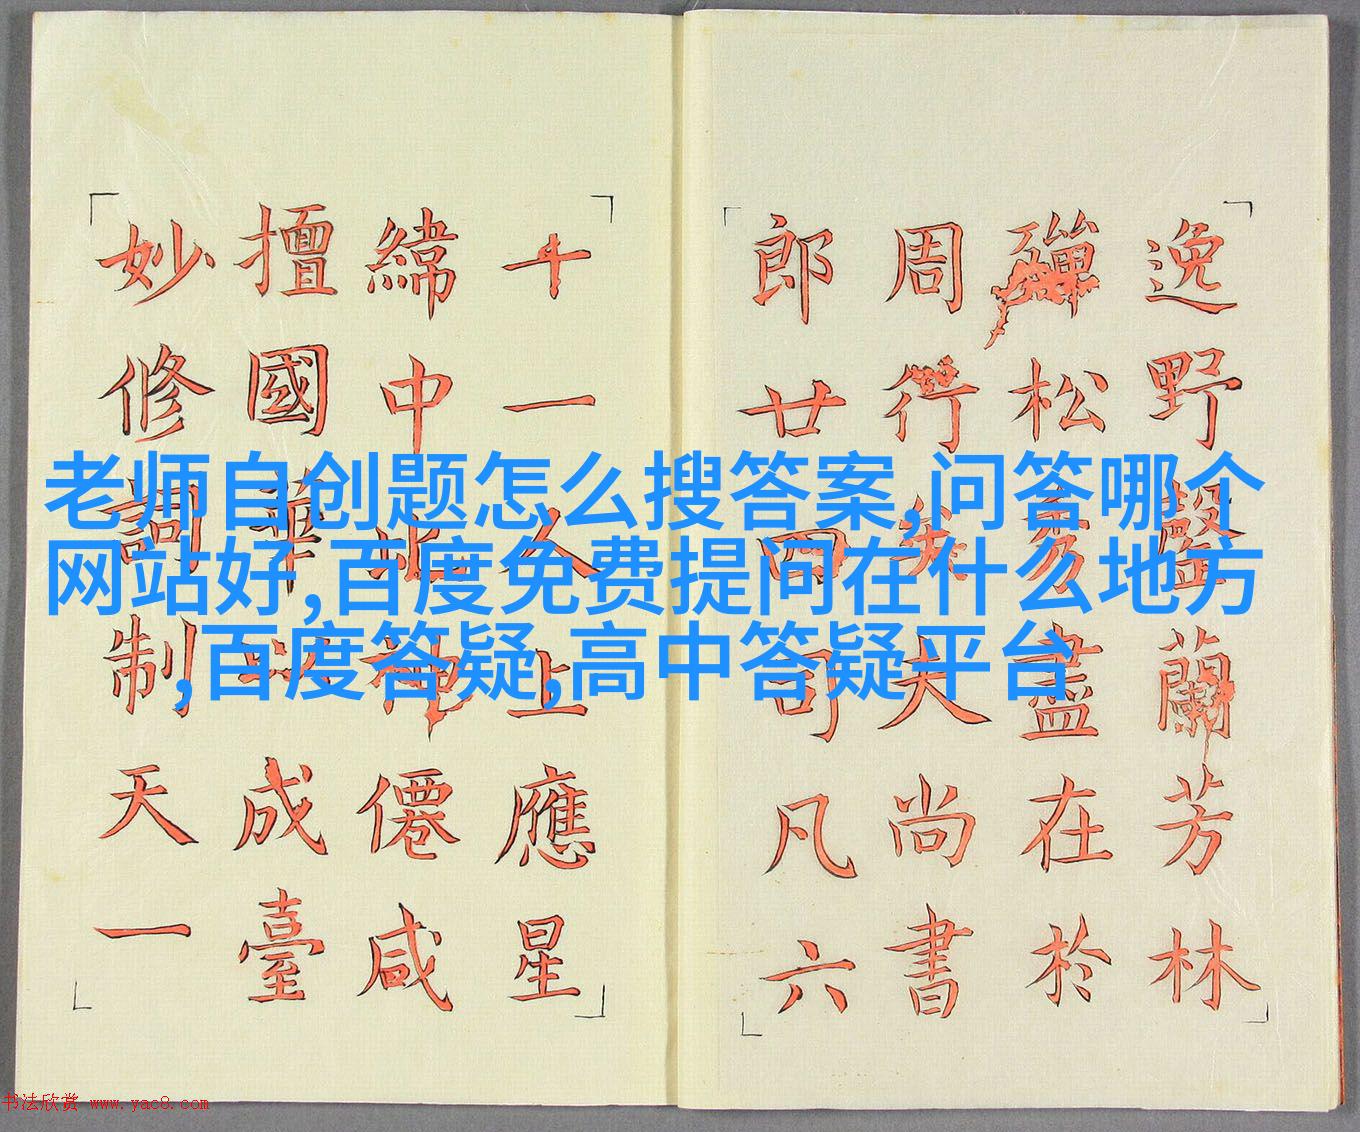 老师自创题怎么搜答案,问答哪个
网站好,百度免费提问在什么地方
,百度答疑,高中答疑平台
逸野蘭芳林
殫松盡在於
周行夫尚書
郎廿四司凡六
十一人上應星
緯中北神僊咸
擅國華以成臺
妙修詞制天一
书法欣赏 www.yac8.com